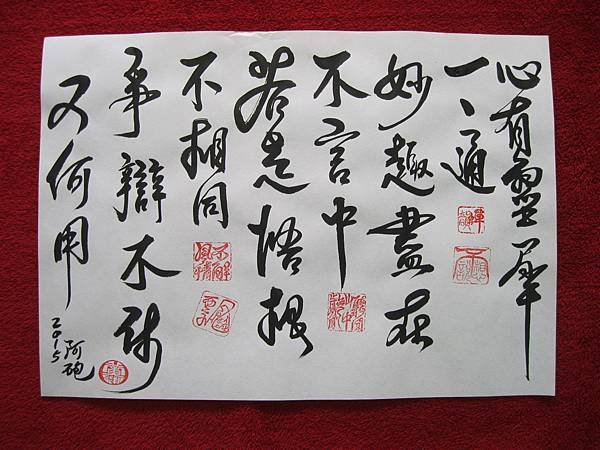 心有靈犀
一、通
妙趣盡在
不言中
若是悟根
不相同
爭辯不
又何用
2015 阿砲